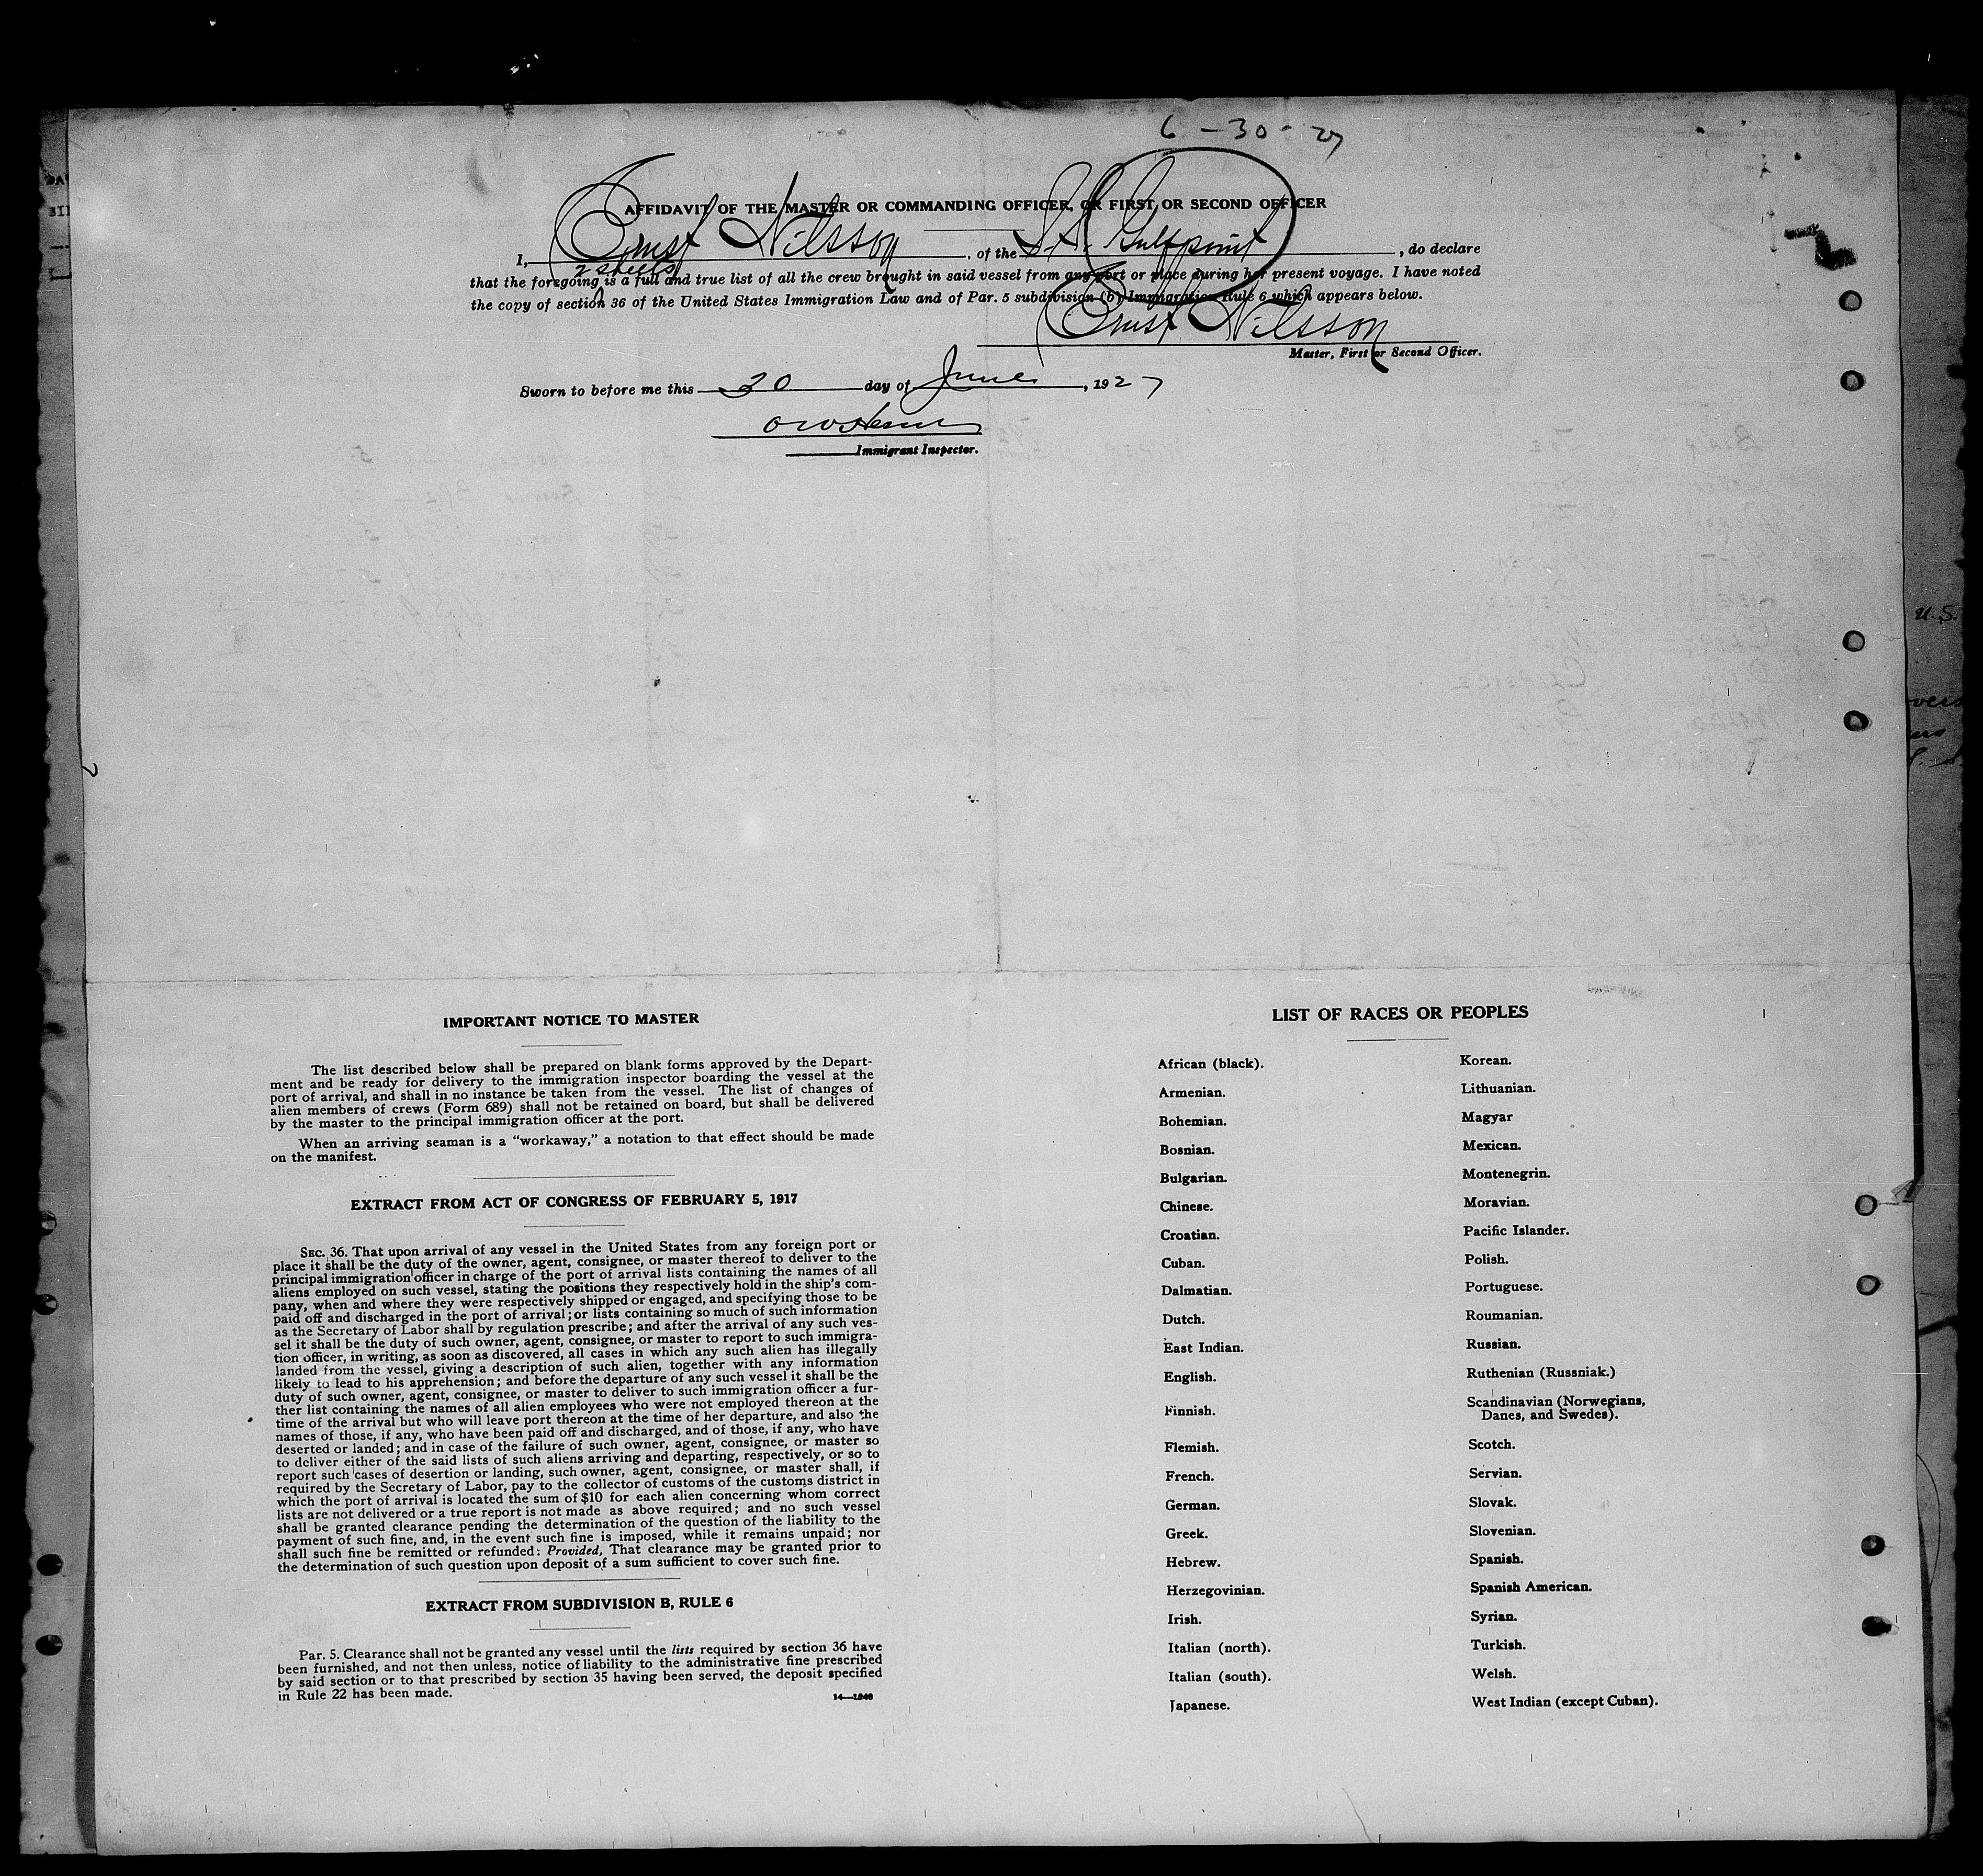 6 - 30 - 27
AFFIDAVIT OF THE MASTER OR COMMANDING OFFICER, OR FIRST OR SECOND OFFICER
I, Ernst Nilsson, of the S.S. Gulfpoint, do declare
2 sheets
that the foregoing is a full and true list of all the crew brought in said vessel from any port or place during her present voyage. I have noted
the copy of section 36 of the United States Immigration Law and of Par. 5 subdivision (b) Immigration Rule 6 which appears below.
Ernst Nilsson
Master, First or Second Officer.
Sworn to before me this 30 day of June, 1927
Immigrant Inspector.
IMPORTANT NOTICE TO MASTER
The list described below shall be prepared on blank forms approved by the Depart-
ment and be ready for delivery to the immigration inspector boarding the vessel at the
port of arrival, and shall in no instance be taken from the vessel. The list of changes of
alien members of crews (Form 689) shall not be retained on board, but shall be delivered
by the master to the principal immigration officer at the port.
When an arriving seaman is a “workaway,” a notation to that effect should be made
on the manifest.
EXTRACT FROM ACT OF CONGRESS OF FEBRUARY 5, 1917
SEC. 36. That upon arrival of any vessel in the United States from any foreign port or
place it shall be the duty of the owner, agent, consignee, or master thereof to deliver to the
principal immigration officer in charge of the port of arrival lists containing the names of all
aliens employed on such vessel, stating the positions they respectively hold in the ship's com-
pany, when and where they were respectively shipped or engaged, and specifying those to be
paid off and discharged in the port of arrival; or lists containing so much of such information
as the Secretary of Labor shall by regulation prescribe; and after the arrival of any such ves-
sel it shall be the duty of such owner, agent, consignee, or master to report to such immigra-
tion officer, in writing, as soon as discovered, all cases in which any such alien has illegally
landed from the vessel, giving a description of such alien, together with any information
likely to lead to his apprehension; and before the departure of any such vessel it shall be the
duty of such owner, agent, consignee, or master to deliver to such immigration officer a fur-
ther list containing the names of all alien employees who were not employed thereon at the
time of the arrival but who will leave port thereon at the time of her departure, and also the
names of those, if any, who have been paid off and discharged, and of those, if any, who have
deserted or landed; and in case of the failure of such owner, agent, consignee, or master so
to deliver either of the said lists of such aliens arriving and departing, respectively, or so to
report such cases of desertion or landing, such owner, agent, consignee, or master shall, if
required by the Secretary of Labor, pay to the collector of customs of the customs district in
which the port of arrival is located the sum of $10 for each alien concerning whom correct
lists are not delivered or a true report is not made as above required; and no such vessel
shall be granted clearance pending the determination of the question of the liability to the
payment of such fine, and, in the event such fine is imposed, while it remains unpaid; nor
shall such fine be remitted or refunded: Provided, That clearance may be granted prior to
the determination of such question upon deposit of a sum sufficient to cover such fine.
EXTRACT FROM SUBDIVISION B, RULE 6
Par. 5. Clearance shall not be granted any vessel until the lists required by section 36 have
been furnished, and not then unless, notice of liability to the administrative fine prescribed
by said section or to that prescribed by section 35 having been served, the deposit specified
in Rule 22 has been made.
LIST OF RACES OR PEOPLES
African (black).
Armenian.
Bohemian.
Bosnian.
Bulgarian.
Chinese.
Croatian.
Cuban.
Dalmatian.
Dutch.
East Indian.
English.
Finnish.
Flemish.
French.
German.
Greek.
Hebrew.
Herzegovinian.
Irish.
Italian (north).
Italian (south).
Japanese.
Korean.
Lithuanian.
Magyar
Mexican.
Montenegrin.
Moravian.
Pacific Islander.
Polish.
Portuguese.
Roumanian.
Russian.
Ruthenian (Russniak.)
Scandinavian (Norwegians,
Danes, and Swedes).
Scotch.
Servian.
Slovak.
Slovenian.
Spanish.
Spanish American.
Syrian.
Turkish.
Welsh.
West Indian (except Cuban).
U.S.